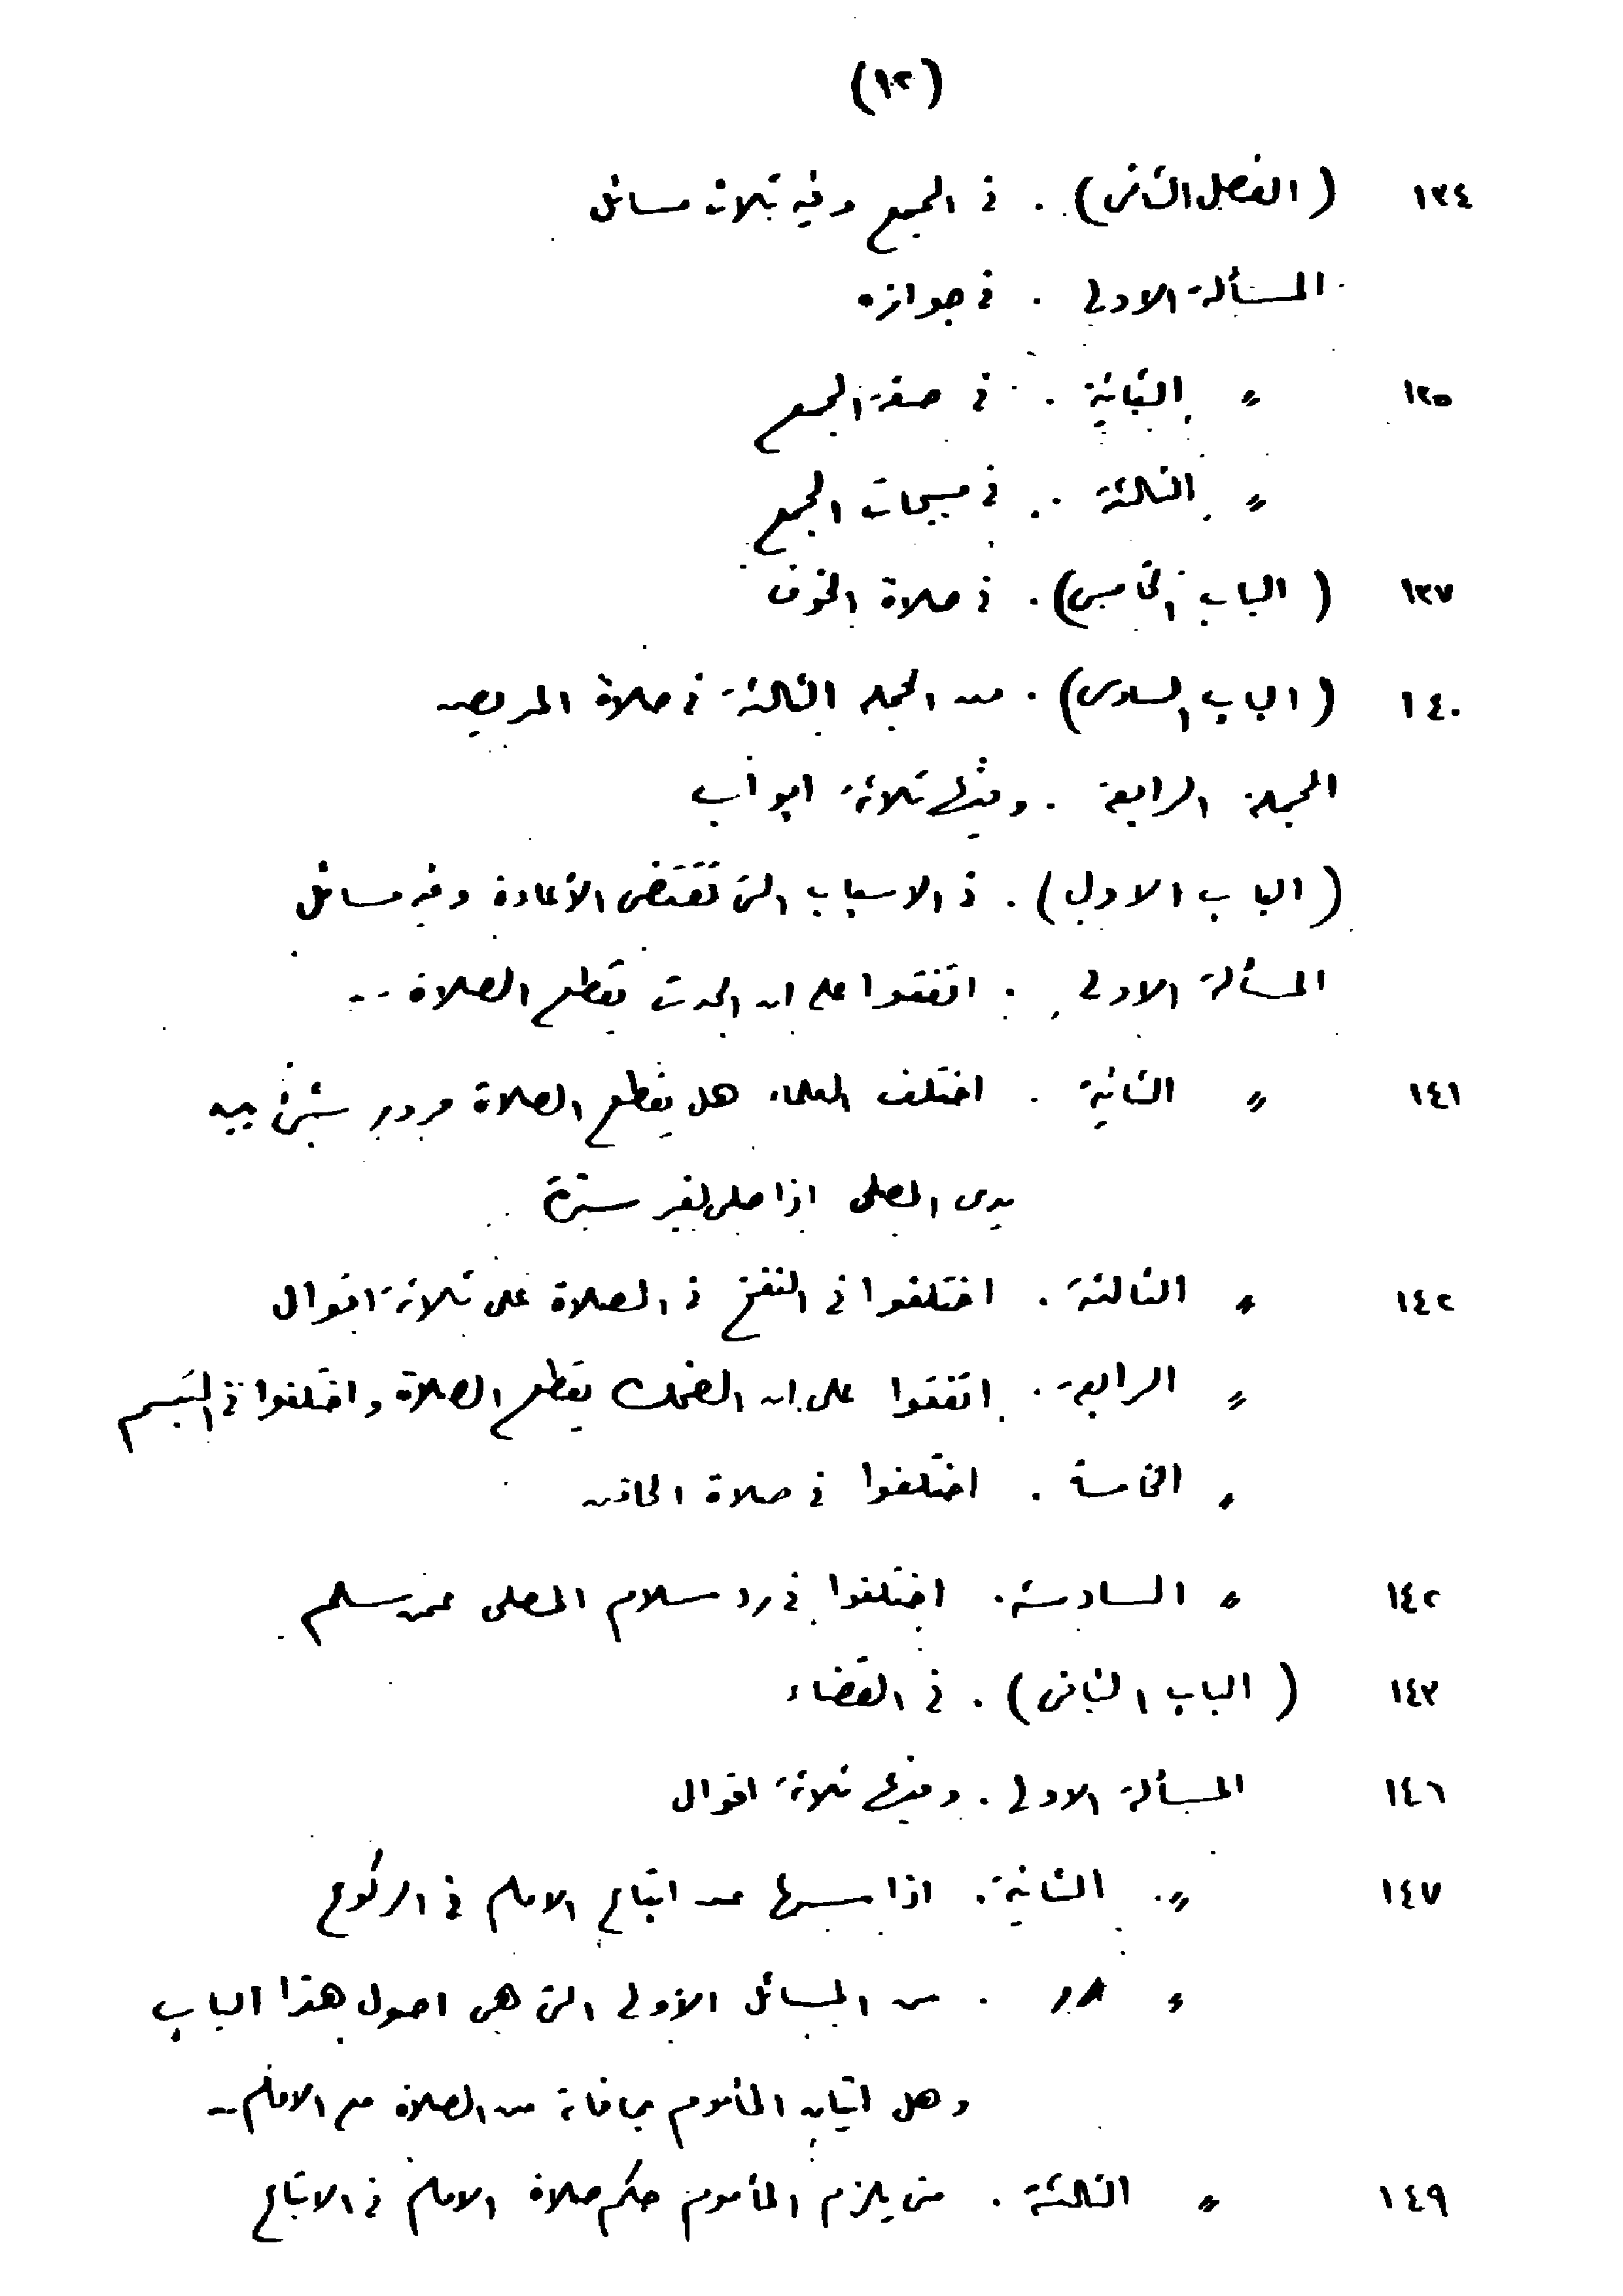 (١٢)
١٣٤ (الفصل الثانى) . فى الجمع وفيه ثلاث مسائل
المسألة الاولى . فى جوازه
١٣٥ 〃 الثانية . فى صفة الجمع
〃 الثالثة . فى مبيحات الجمع
١٣٧ (الباب الخامس) . فى صلاة الخوف
١٤٠ (الباب السادس) . من الجملة الثالثة فى صلاة المريض
الجملة الرابعة . وفيها ثلاثة ابواب
(الباب الاول) . فى الاسباب التى تقتضى الأعادة وفيه مسائل
المسألة الاولى . اتفقوا على ان الحدث يقطع الصلاة ..
١٤١ 〃 الثانية . اختلف العلماء هل يقطع الصلاة مرور شئ بين
يدى المصلى اذا صلى لغير سترة
١٤٢ 〃 الثالثة . اختلفوا فى النفخ فى الصلاة على ثلاثة اقوال
〃 الرابعة . اتفقوا على ان الضحك يقطع الصلاة واختلفوا فى التبسم
〃 الخامسة . اختلفوا فى صلاة الحاقن
١٤٢ 〃 السادسة . اختلفوا فى رد سلام المصلى عمن سلم
١٤٣ (الباب الثانى) . فى القضاء
١٤٦ المسألة الاولى . وفيها ثلاثة اقوال
١٤٧ 〃 الثانية . اذا سها عن اتباع الامام فى الركوع
〃 . من المسائل الأولى التى هى اصول هذا الباب
وهل اتيان المأموم بما فاته من الصلاة مع الامام ..
١٤٩ 〃 الثالثة . متى يلزم المأموم حكم صلاة الامام فى الاتباع